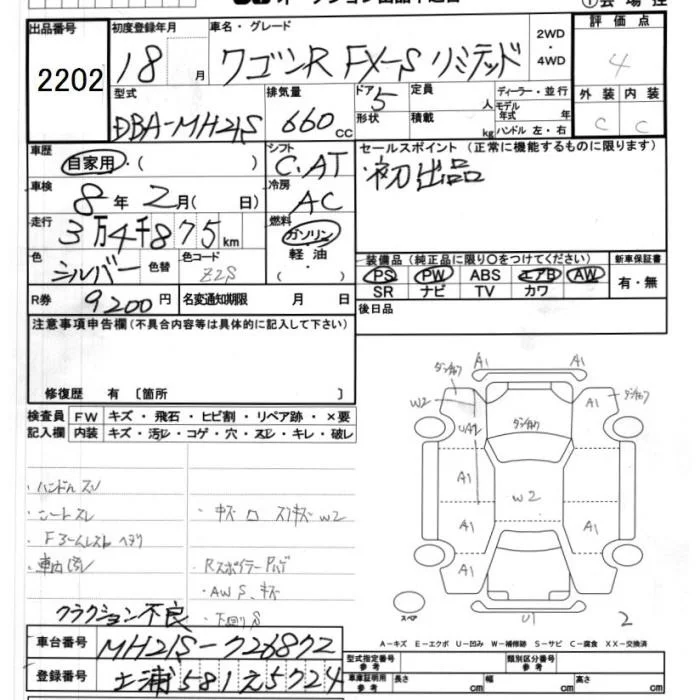 出品番号 2202
初度登録年月 18 月
車名・グレード ワゴンR FX-S リミテッド
2WD・4WD
評価点 4
外装 C 内装 C
型式 DBA-MH21S
排気量 660 cc
ドア 5 形状
定員 人
積載 kg
ディーラー・並行
モデル年式 年
ハンドル 左・右
車歴 自家用・( )
シフト C.AT
セールスポイント (正常に機能するものに限ります)
初出品
車検 8年2月( 日)
冷房 AC
走行 3万4千875km
燃料 ガソリン・軽油・( )
色 シルバー 色替
色コード Z2S
装備品 (純正品に限り○をつけてください)
PS PW ABS エアB AW
SR ナビ TV カワ
新車保証書 有・無
R券 9200円
名変通知期限 月 日
後日品
注意事項申告欄 (不具合内容等は具体的に記入して下さい)
修復歴 有 〔箇所 〕
検査員記入欄
FW キズ・飛石・ヒビ割・リペア跡・×要
内装 キズ・汚レ・コゲ・穴・スレ・キレ・破レ
・ハンドルスレ
・シートスレ
・車内汚レ
クラクション不良
・キズ ロ スリキズ W2
・Rスポイラー
・AWS、キズ
・下回りS
A1 A1
W2 A1
UA2
A1 W2
A1 A1
A1 A1
U1 2
スペア
A-キズ E-エクボ U-凹み W-補修跡 S-サビ C-腐食 XX-交換済
車台番号 MH21S-726872
登録番号 土浦581え5724
型式指定番号 参考
類別区分番号 参考
車庫証明用 参考 長さ cm 幅 cm 高さ cm